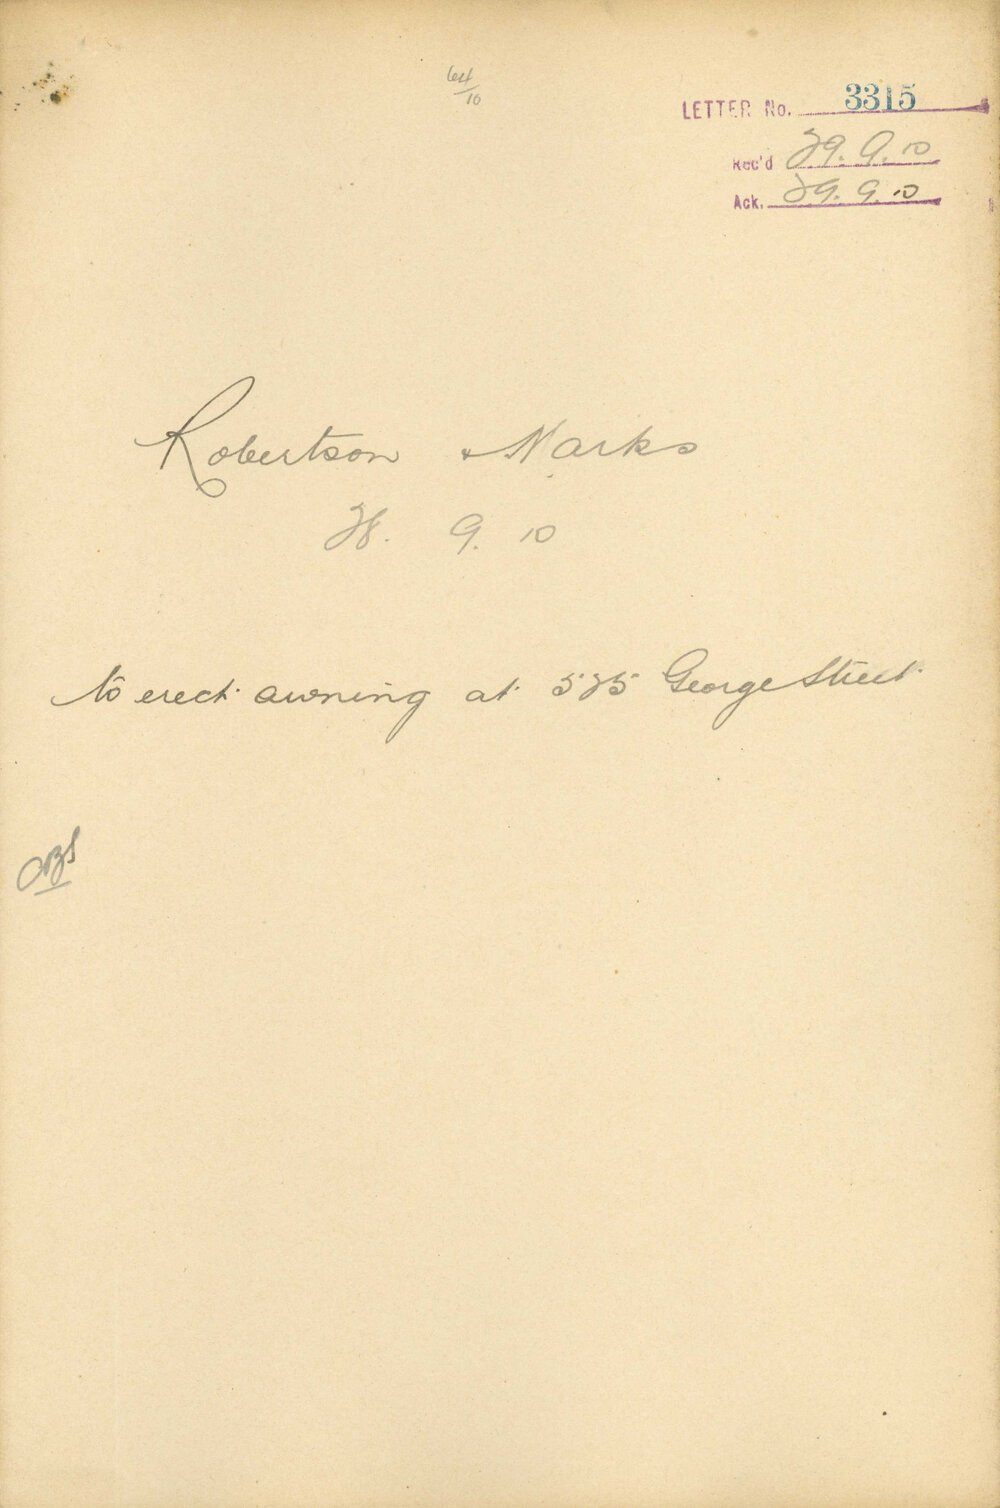 64/10
LETTER No. 3315
Rec'd 29. 9. 10
Ack. 29. 9. 10
Robertson & Marks
28. 9. 10
to erect awning at 525 George Street